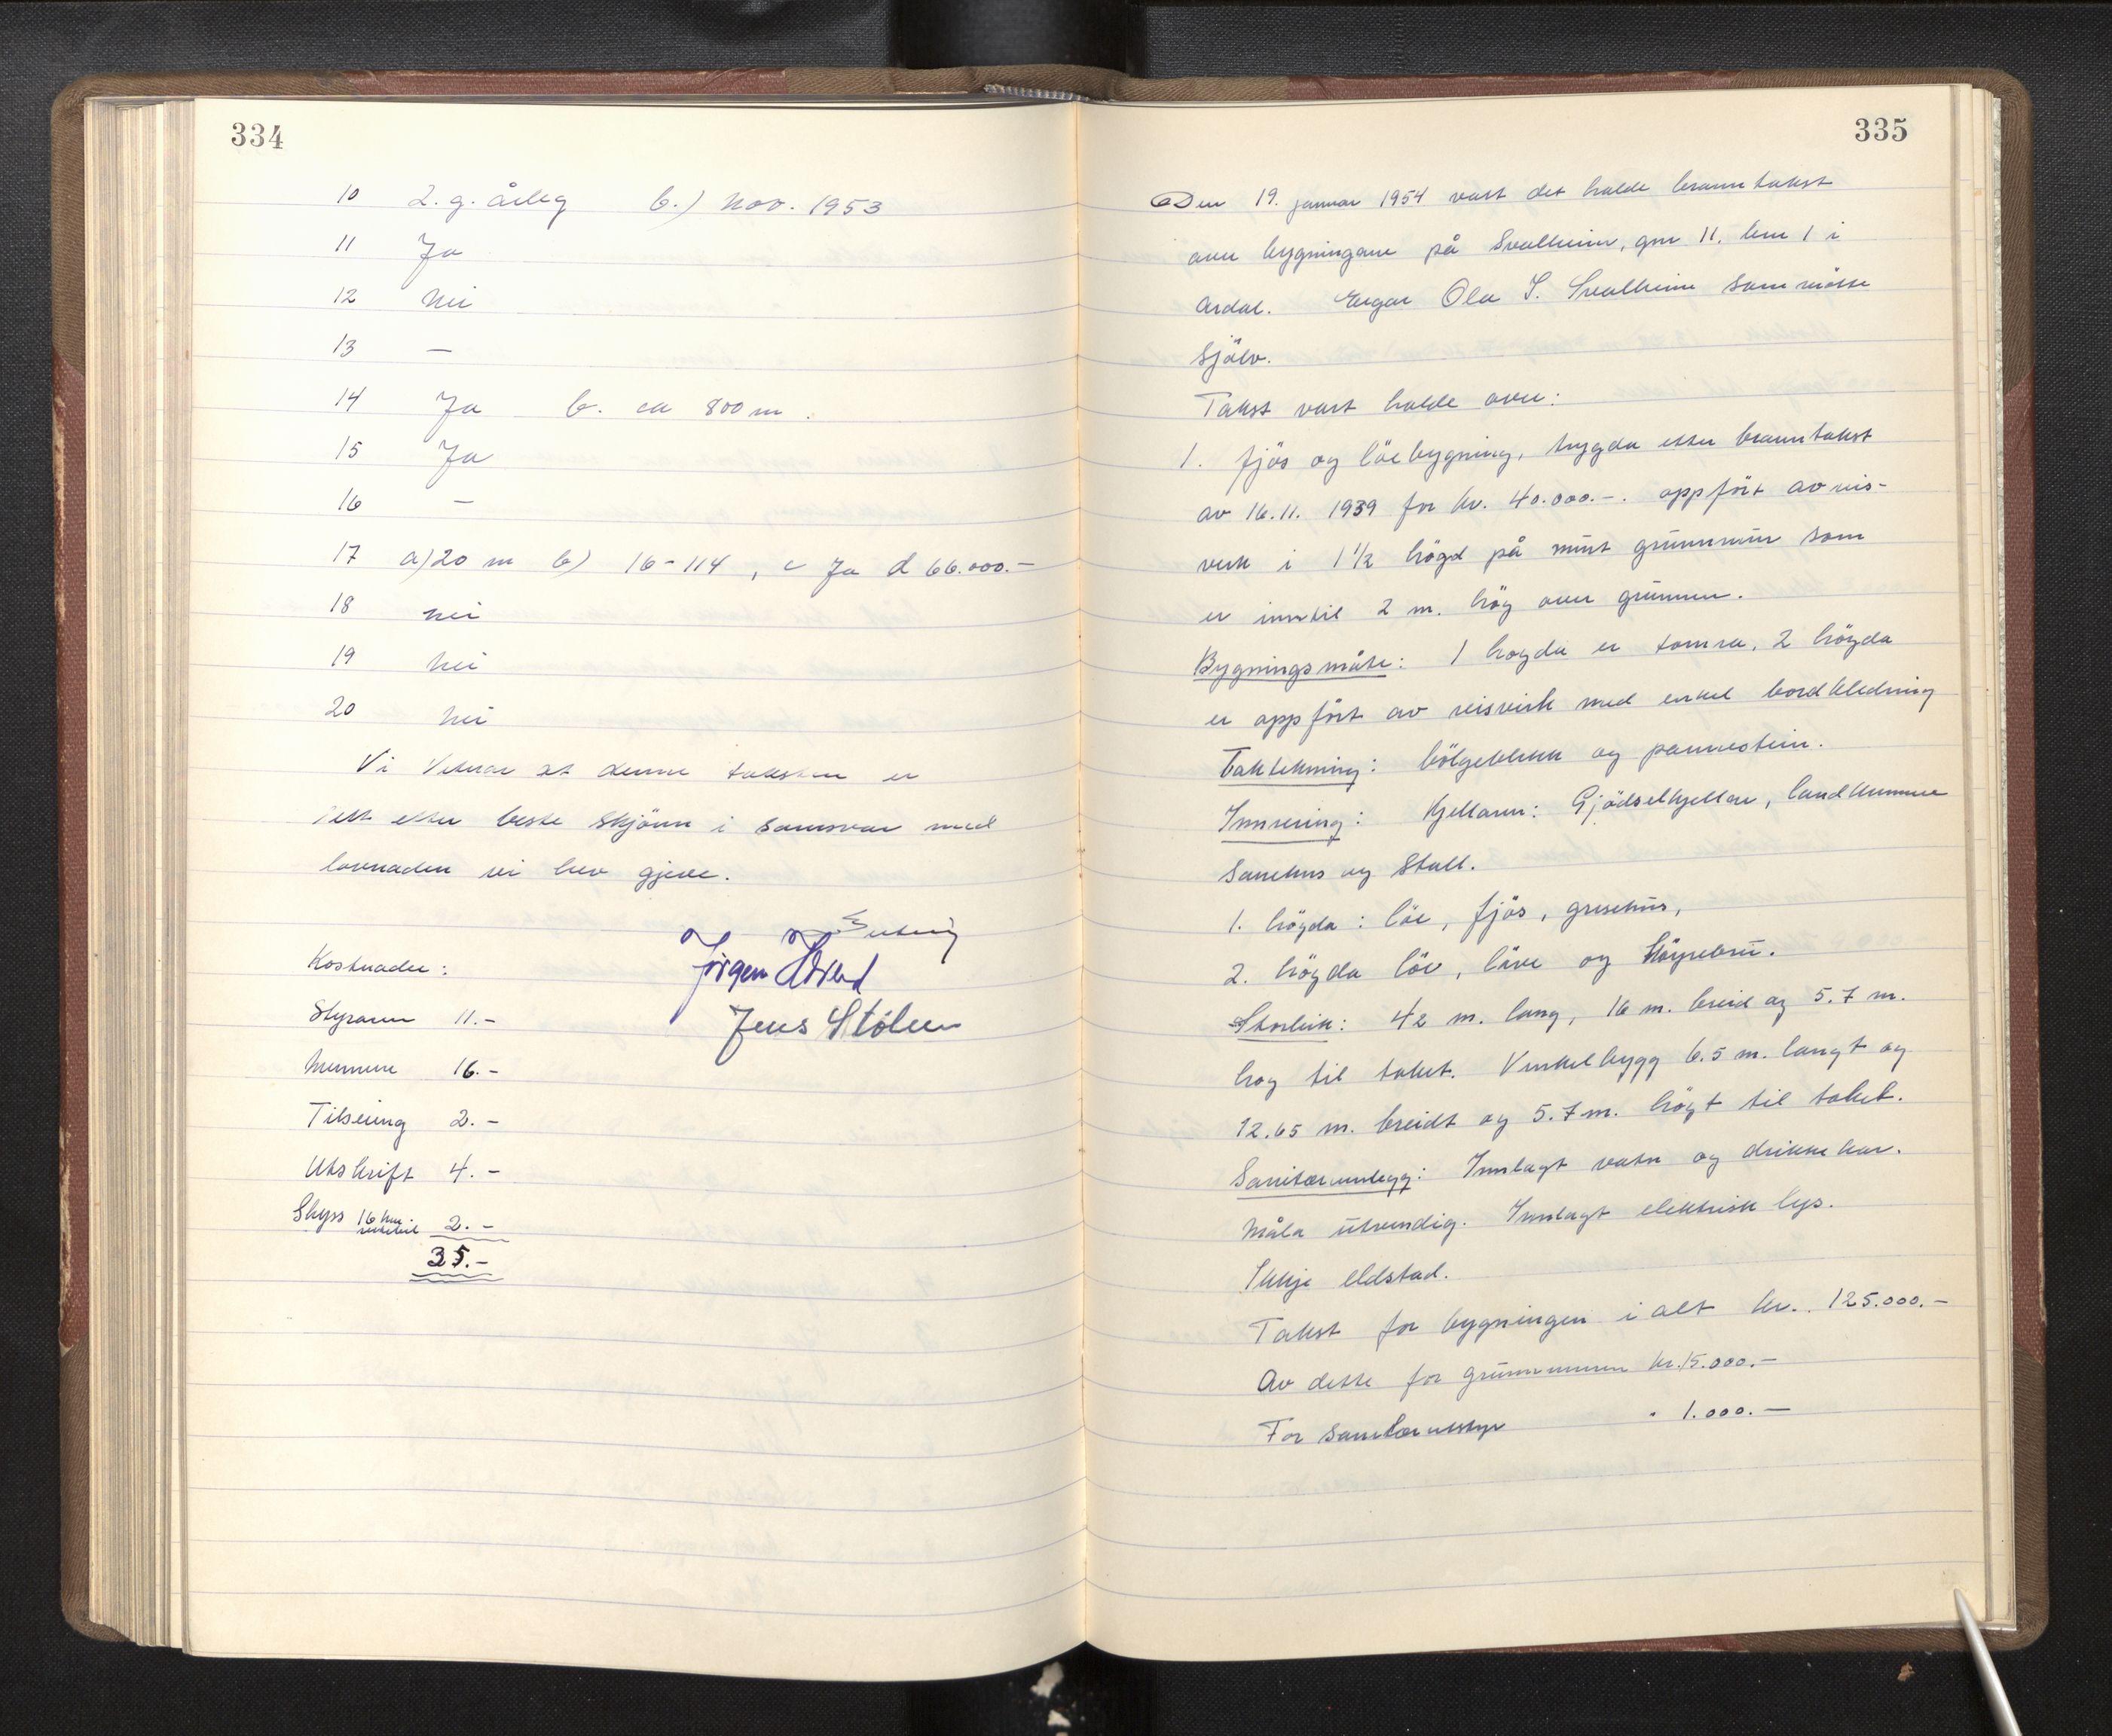 334
10 2. g. årleg b.) nov. 1953
11 Ja
12 nei
13 —
14 Ja b. ca 800 m.
15 Ja
16 —
17 a) 20 m b) 16-114, c Ja d 66.000.-
18 nei
19 nei
20 nei
Vi vitnar at denne taksten er
sett etter beste skjönn i samsvar med
lovnaden vi hev gjeve.
Jörgen
Jens Stölen
Kostnader:
Styraren 11.-
Mennene 16.-
Tilseing 2.-
Utskrift 4.-
Skyss 16 km 2.-
35.-
335
Den 19. januar 1954 vart det halde branntakst
over bygningane på Svalheim, gnr 11, bnr 1 i
Årdal. Eigar Ola S. Svalheim som mötte
sjölv.
Takst vart halde over:
1. fjös og löebygning, trygda etter branntakst
av 16.11. 1939 for kr. 40.000.-. oppfört av reis-
verk i 1 1/2 högd på murt grunnmur som
er inntil 2 m. hög over grunnen.
Bygningsmåte: 1 högda er tomra, 2 högda
er oppfört av reisverk med enkel bordkledning
Taktekning: bölgeblekk og pannestein.
Innreiing: Kjellaren: Gjödselkjellar, landkummer
sauehus og stall.
1. högda: löe, fjös, grisehus,
2. högda löe, låve og köyrebru.
Storleik: 42 m. lang, 16 m. breid og 5.7 m.
hög til taket. Vinkelbygg 6.5 m. langt og
12.65 m. breidt og 5.7 m. högt til taket.
Sanitæranlegg: Innlagt vatn og drikkekar.
Måla utvendig. Innlagt elektrisk lys.
Ikkje eldstad.
Takst for bygningen i alt kr. 125.000.-
Av dette for grunnmuren kr. 15.000.-
For sanitærutstyr " 1.000.-